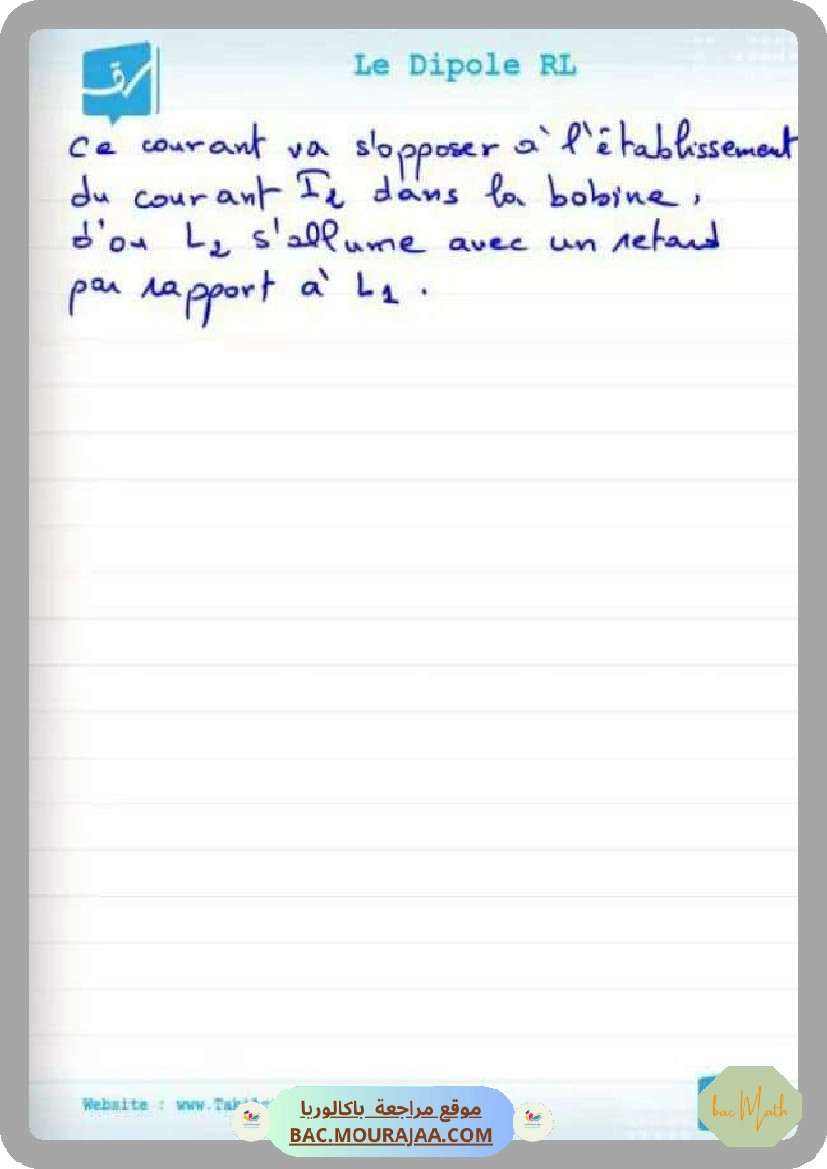 Le Dipole RL
ce courant va s'opposer à l'établissement
du courant I2 dans la bobine,
d'ou L2 s'allume avec un retard
par rapport à L1.
Website : www.
موقع مراجعة باكالوريا
BAC.MOURAJAA.COM
bac Math